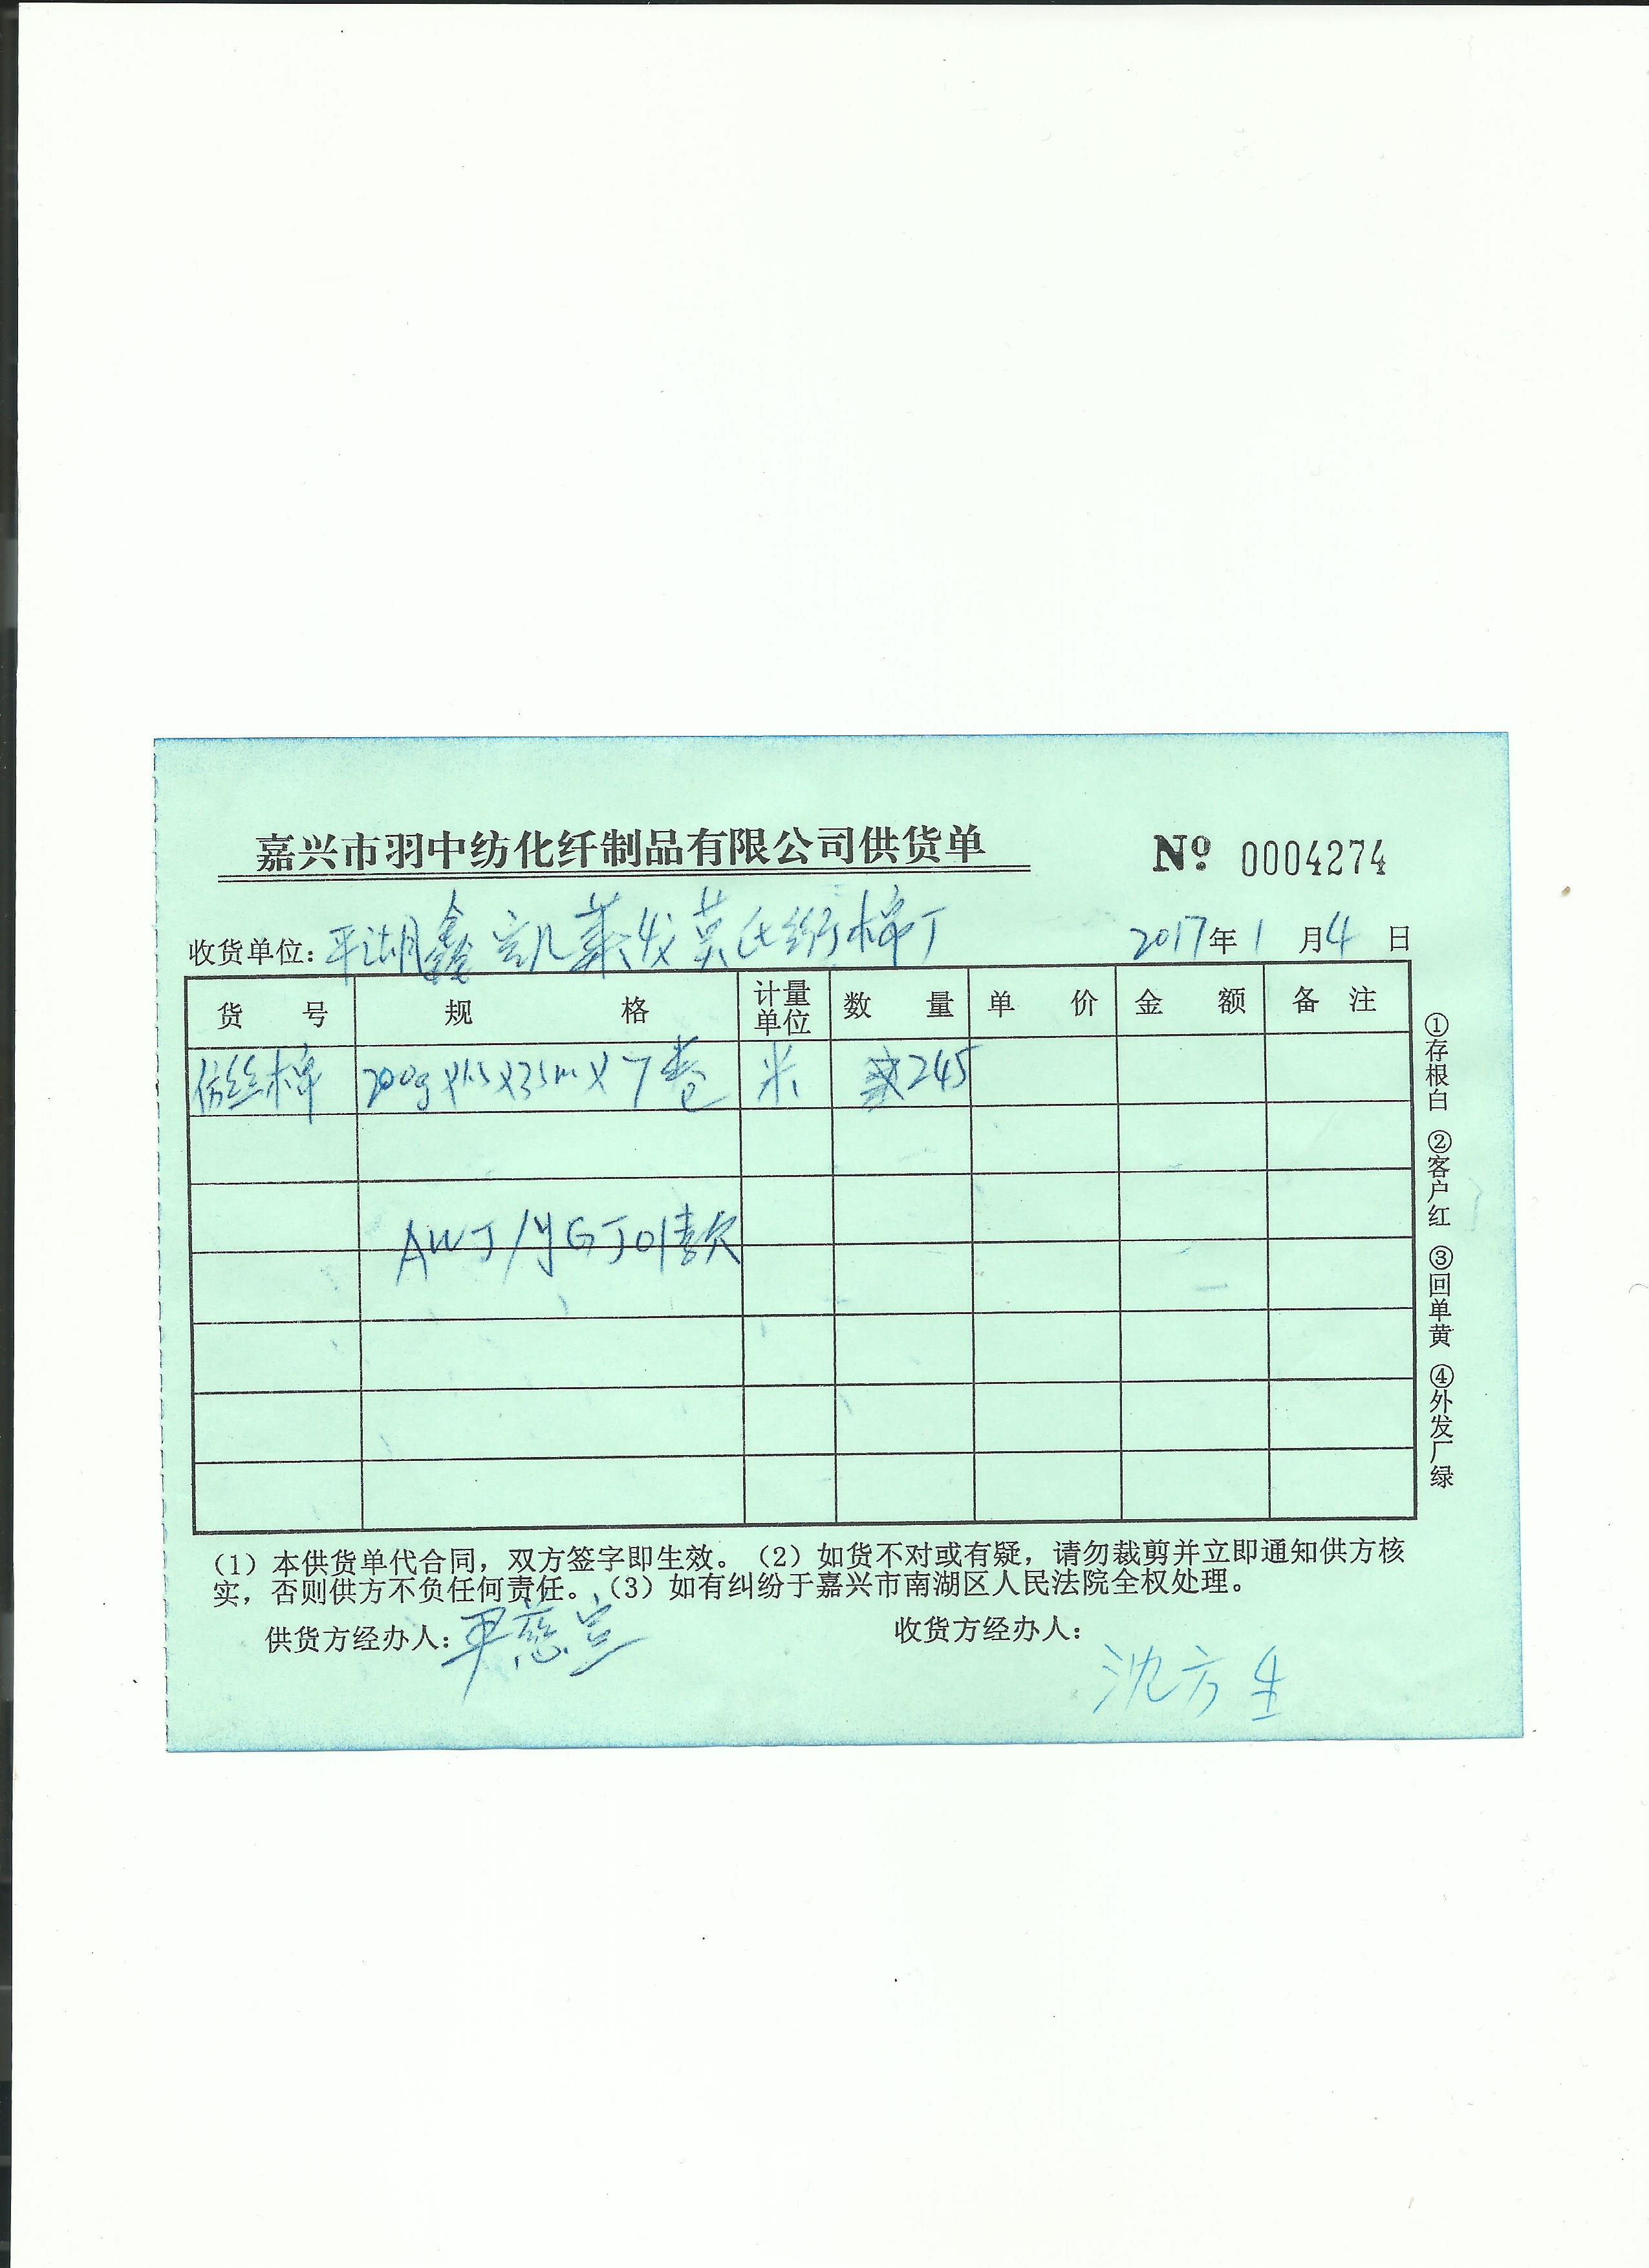 嘉兴市羽中纺化纤制品有限公司供货单 № 0004274
收货单位：平湖鑫凯 发英 绗棉厂 2017年1月4日
货号 规格 计量单位 数量 单价 金额 备注
仿丝棉 200g×1.5×35m×7卷 米 245
AWJ/YGJ01款
①存根白 ②客户红 ③回单黄 ④外发厂绿
(1) 本供货单代合同，双方签字即生效。(2) 如货不对或有疑，请勿裁剪并立即通知供方核
实，否则供方不负任何责任。(3) 如有纠纷于嘉兴市南湖区人民法院全权处理。
供货方经办人： 收货方经办人：
沈方生